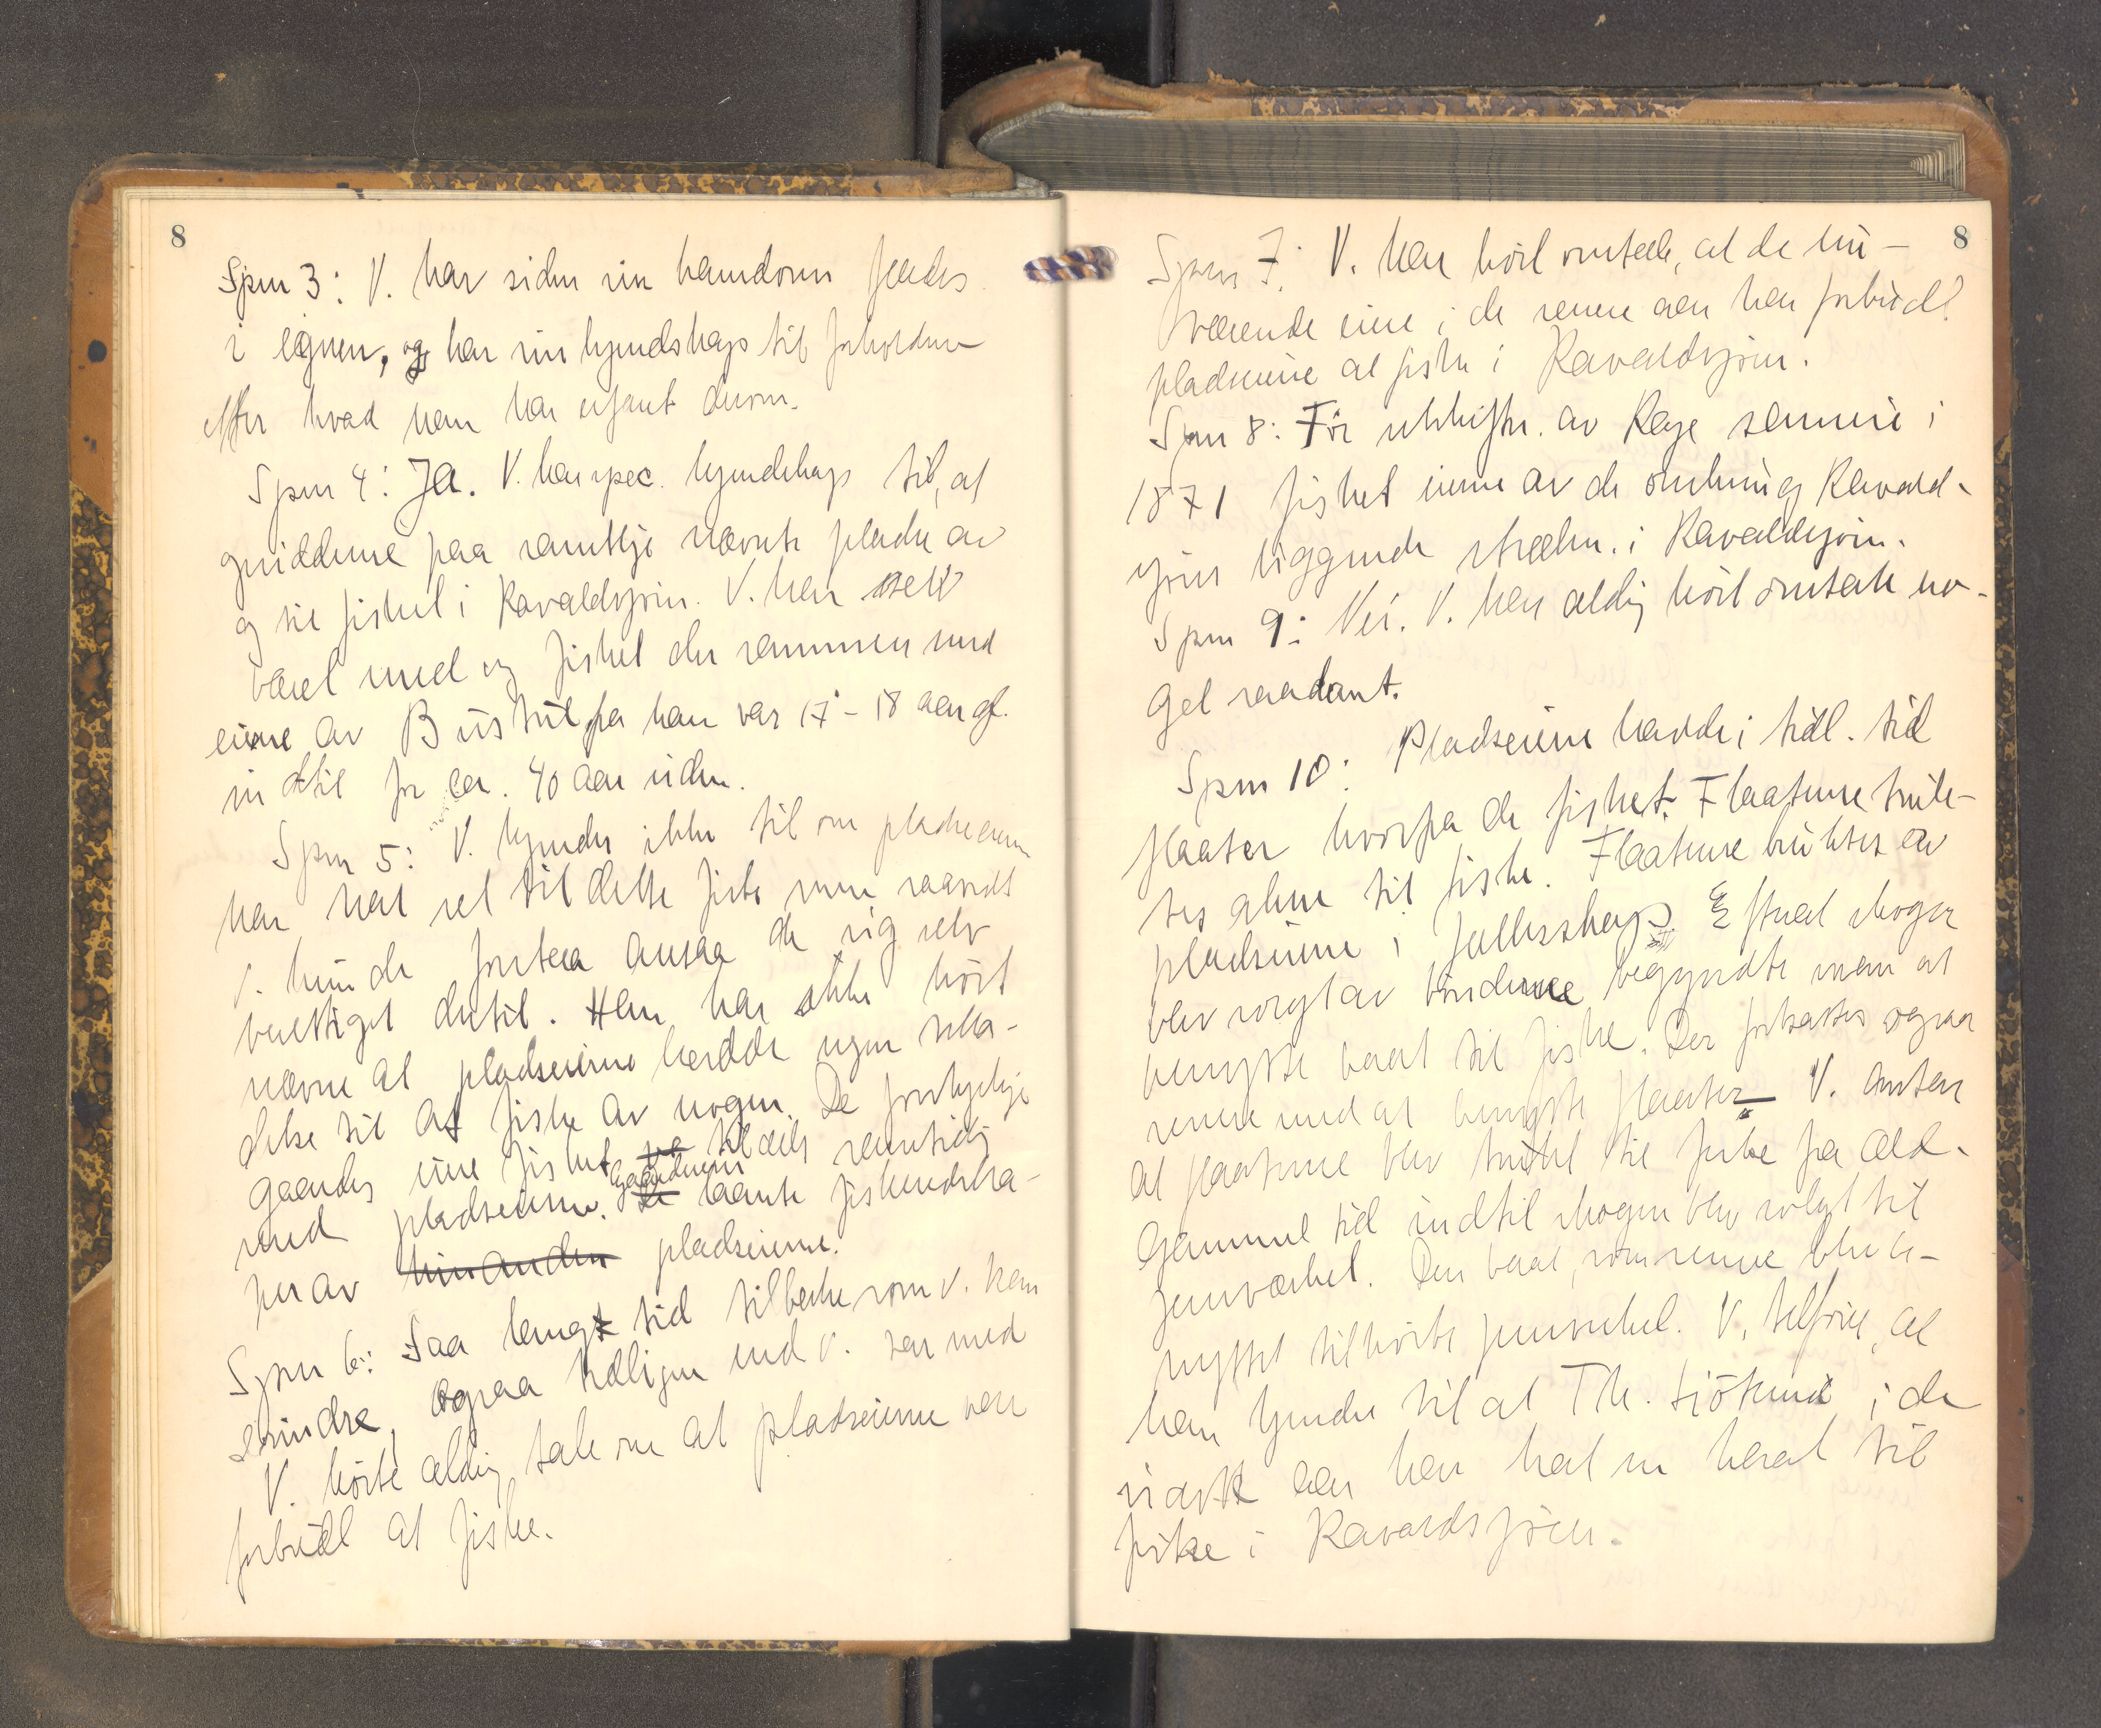 8
Spm 3: V. har siden sin barndom færdes
i egnen, og har sin kjendskap til forholdene
efter hvad han har erfaret derom.
Spm 4: Ja. V. har spec. kjendskap til, at
opsidderne paa samtlige nævnte pladse av
og til fisket i Ravaldsjøen. V. har selv
været med og fisket der sammen med
eierne av Büstül fra han var 17-18 aar gl.
indtil for ca. 40 aar siden.
Spm 5: V. kjender ikke til om pladseierne
har hat ret til dette fiske men saavidt
V. kunde forstaa ansaa de sig selv
berettiget dertil. Han har ikke hørt
nævne at pladseierne hadde nogen tilla-
delse til at fiske av nogen. De forskjellige
gaardes eiere fisket til dels samtidig
med pladseierne. Gaardeierne laante fiskeredska-
per av hinanden pladseierne.
Spm 6: Saa langt tid tilbake som V. kan
erindre, ogsaa tidligere end V. var med
V. hørte aldrig tale om at pladseierne var
forbudt at fiske.
8
Spm 7: V. har hørt omtale, at de nu-
værende eiere i de senere aar har forbudt
pladseierne at fiske i Ravaldsjøen.
Spm 8: Før utskiftn. av Raje sameie i
1871 fisket eierne av de omkring Ravald-
sjøen liggende stræk. i Ravaldsjøen.
Spm 9: Nei. V. har aldrig hørt omtale no-
get saadant.
Spm 10: Pladseierne havde i tidl. tid
flaater hvorpa de fisket. Flaaterne bruk-
tes alene til fiske. Flaaterne bruktes av
pladseierne i fællesskap. Efterat skogen
blev solgt av bönderne begyndte man at
benytte baat til fiske. Der fortsattes ogsaa
senere med at benytte flaater. V. antar
at flaaterne blev brukt til fiske fra æld-
gammel tid indtil skogen blev solgt til
jernverket. Den baat, som senere blev be-
nyttet tilhørte jernverket. V. tilføier, at
han kjender til at Th. Liöterud i de
sidste aar har hat en baat til
fiske i Ravaldsjøen.